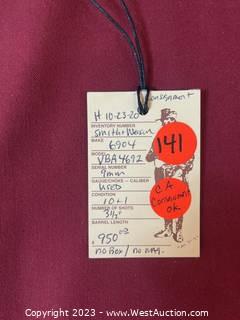 Consignment
H 10-23-20
INVENTORY NUMBER
Smith & Wesson
MAKE
6904
MODEL
VBA4692
SERIAL NUMBER
9mm
GAUGE/CHOKE - CALIBER
Used
CONDITION
10+1
NUMBER OF SHOTS
3½"
BARREL LENGTH
$ 950.00
No Box / No mag.
141
CA
Consignment
OK
© 2023 - WestAuction.com